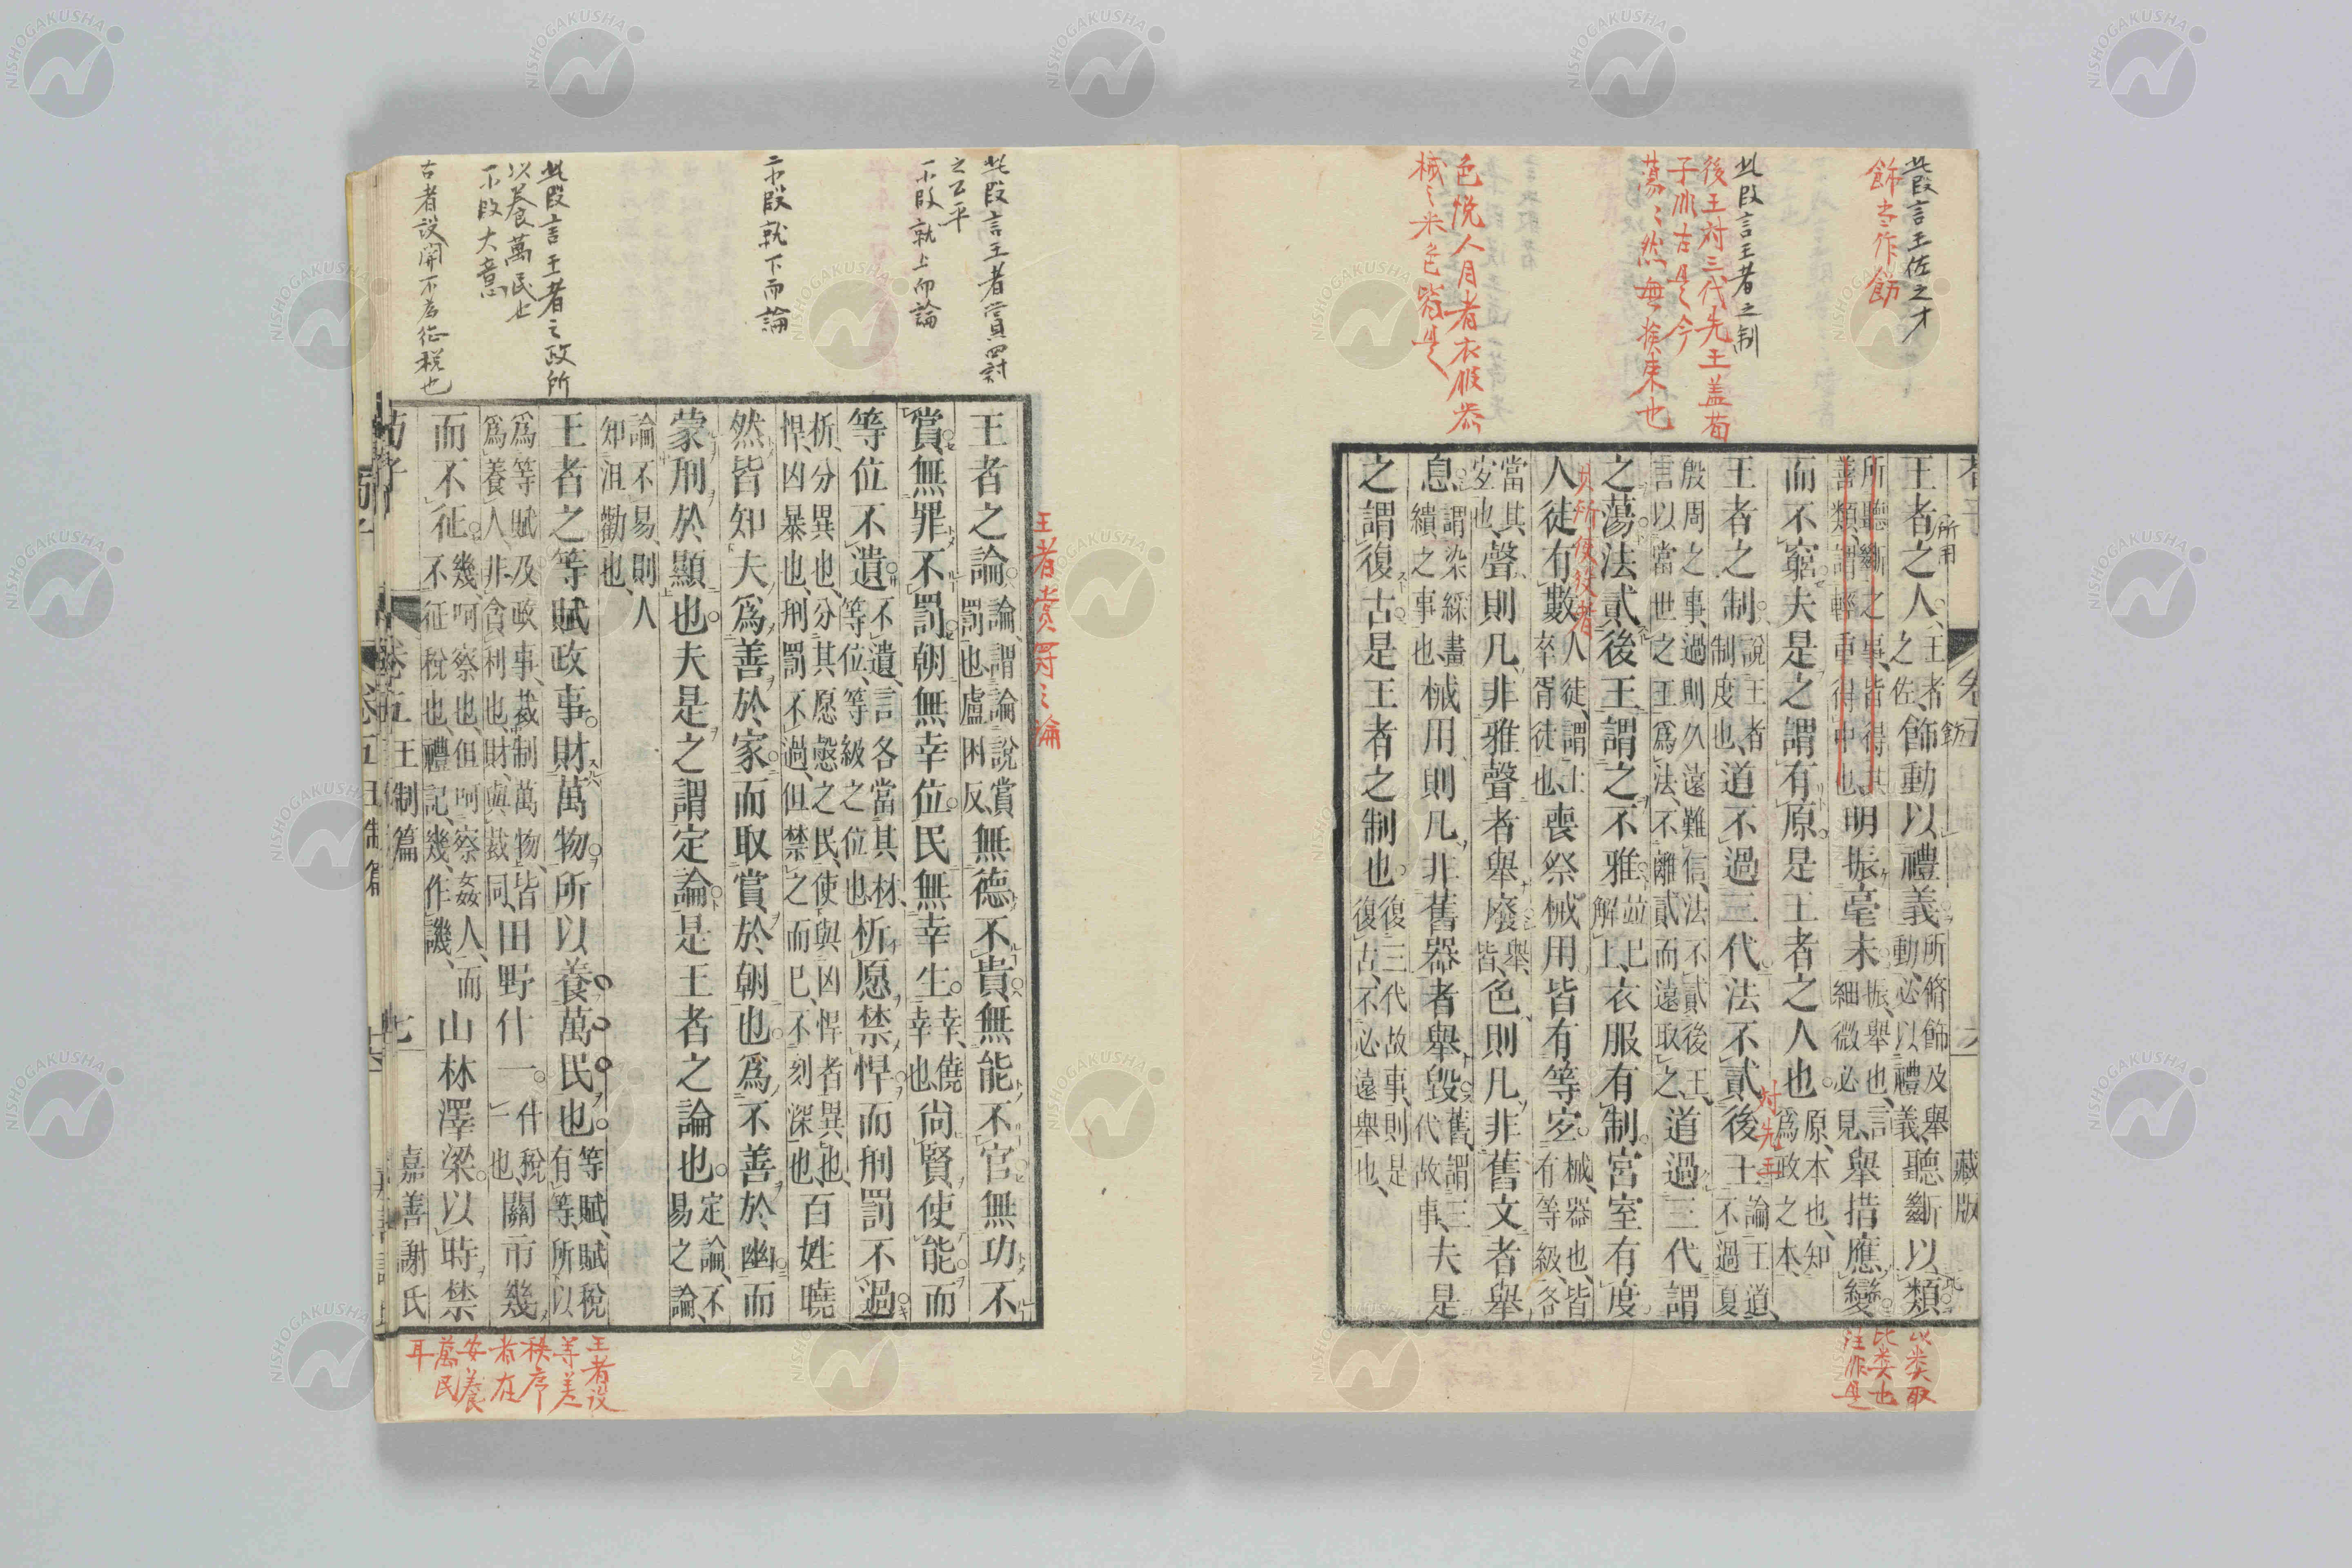 此段言王佐之才
飾之作飭
此段言王者之制
後王対三代先王蓋荀
子以古是今
蕩々然無挨束也
色悦人目者衣服器
械之采色皆是
王者之人王者之佐飾動以禮義所脩飾及舉動必以禮義聽斷以類
所聽斷之事皆得其善類謂輕重得中也明振毫末振舉也言細微必見舉措應變
而不窮夫是之謂有原是王者之人也原本也知爲政之本
王者之制說王者制度也道不過三代法不貳後王論王道不過夏
殷周之事過則久遠難信法不貳後王言以當世之王爲法不離貳而遠取之道過三代謂
之蕩法貳後王謂之不雅竝已解上衣服有制宮室有度
人徒有數人徒謂士卒胥徒也喪祭械用皆有等宜械器也皆有等級各
當其宜也聲則凡非雅聲者舉廢舉皆色則凡非舊文者舉
息謂染綵畫繢之事也械用則凡非舊器者舉毀舊謂三代故事夫是
之謂復古是王者之制也復三代故事則是復古不必遠舉也
所用
飭
其所使役者
対先王
藏版
以类取
比类也
注非是
此段言王者賞罰
之公平
一小段就上而論
二小段就下而論
此段言王者之政所
以養萬民也
一小段大意
古者設関不為征税也
王者賞罰之論
王者之論論謂論說賞罰也盧困反無德不貴無能不官無功不
賞無罪不罰朝無幸位民無幸生幸僥幸也尚賢使能而
等位不遺不遺言各當其材等位等級之位也析愿禁悍而刑罰不過
析分異也分其愿愨之民使與凶悍者異也悍凶暴也刑罰不過但禁之而已不刻深也百姓曉
然皆知夫爲善於家而取賞於朝也爲不善於幽而
蒙刑於顯也夫是之謂定論是王者之論也定論不易之論
論不易則人知沮勸也
王者之等賦政事財萬物所以養萬民也等賦賦稅有等所以
爲等賦及政事裁制萬物皆爲養人非貪利也財與裁同田野什一什稅一也關市幾
而不征幾呵察也但呵察姦人而不征稅也禮記幾作譏山林澤梁以時禁
荀子
卷五
王制篇
七
嘉善謝氏
王者設
等差
秩序
者在
安養
萬民
耳